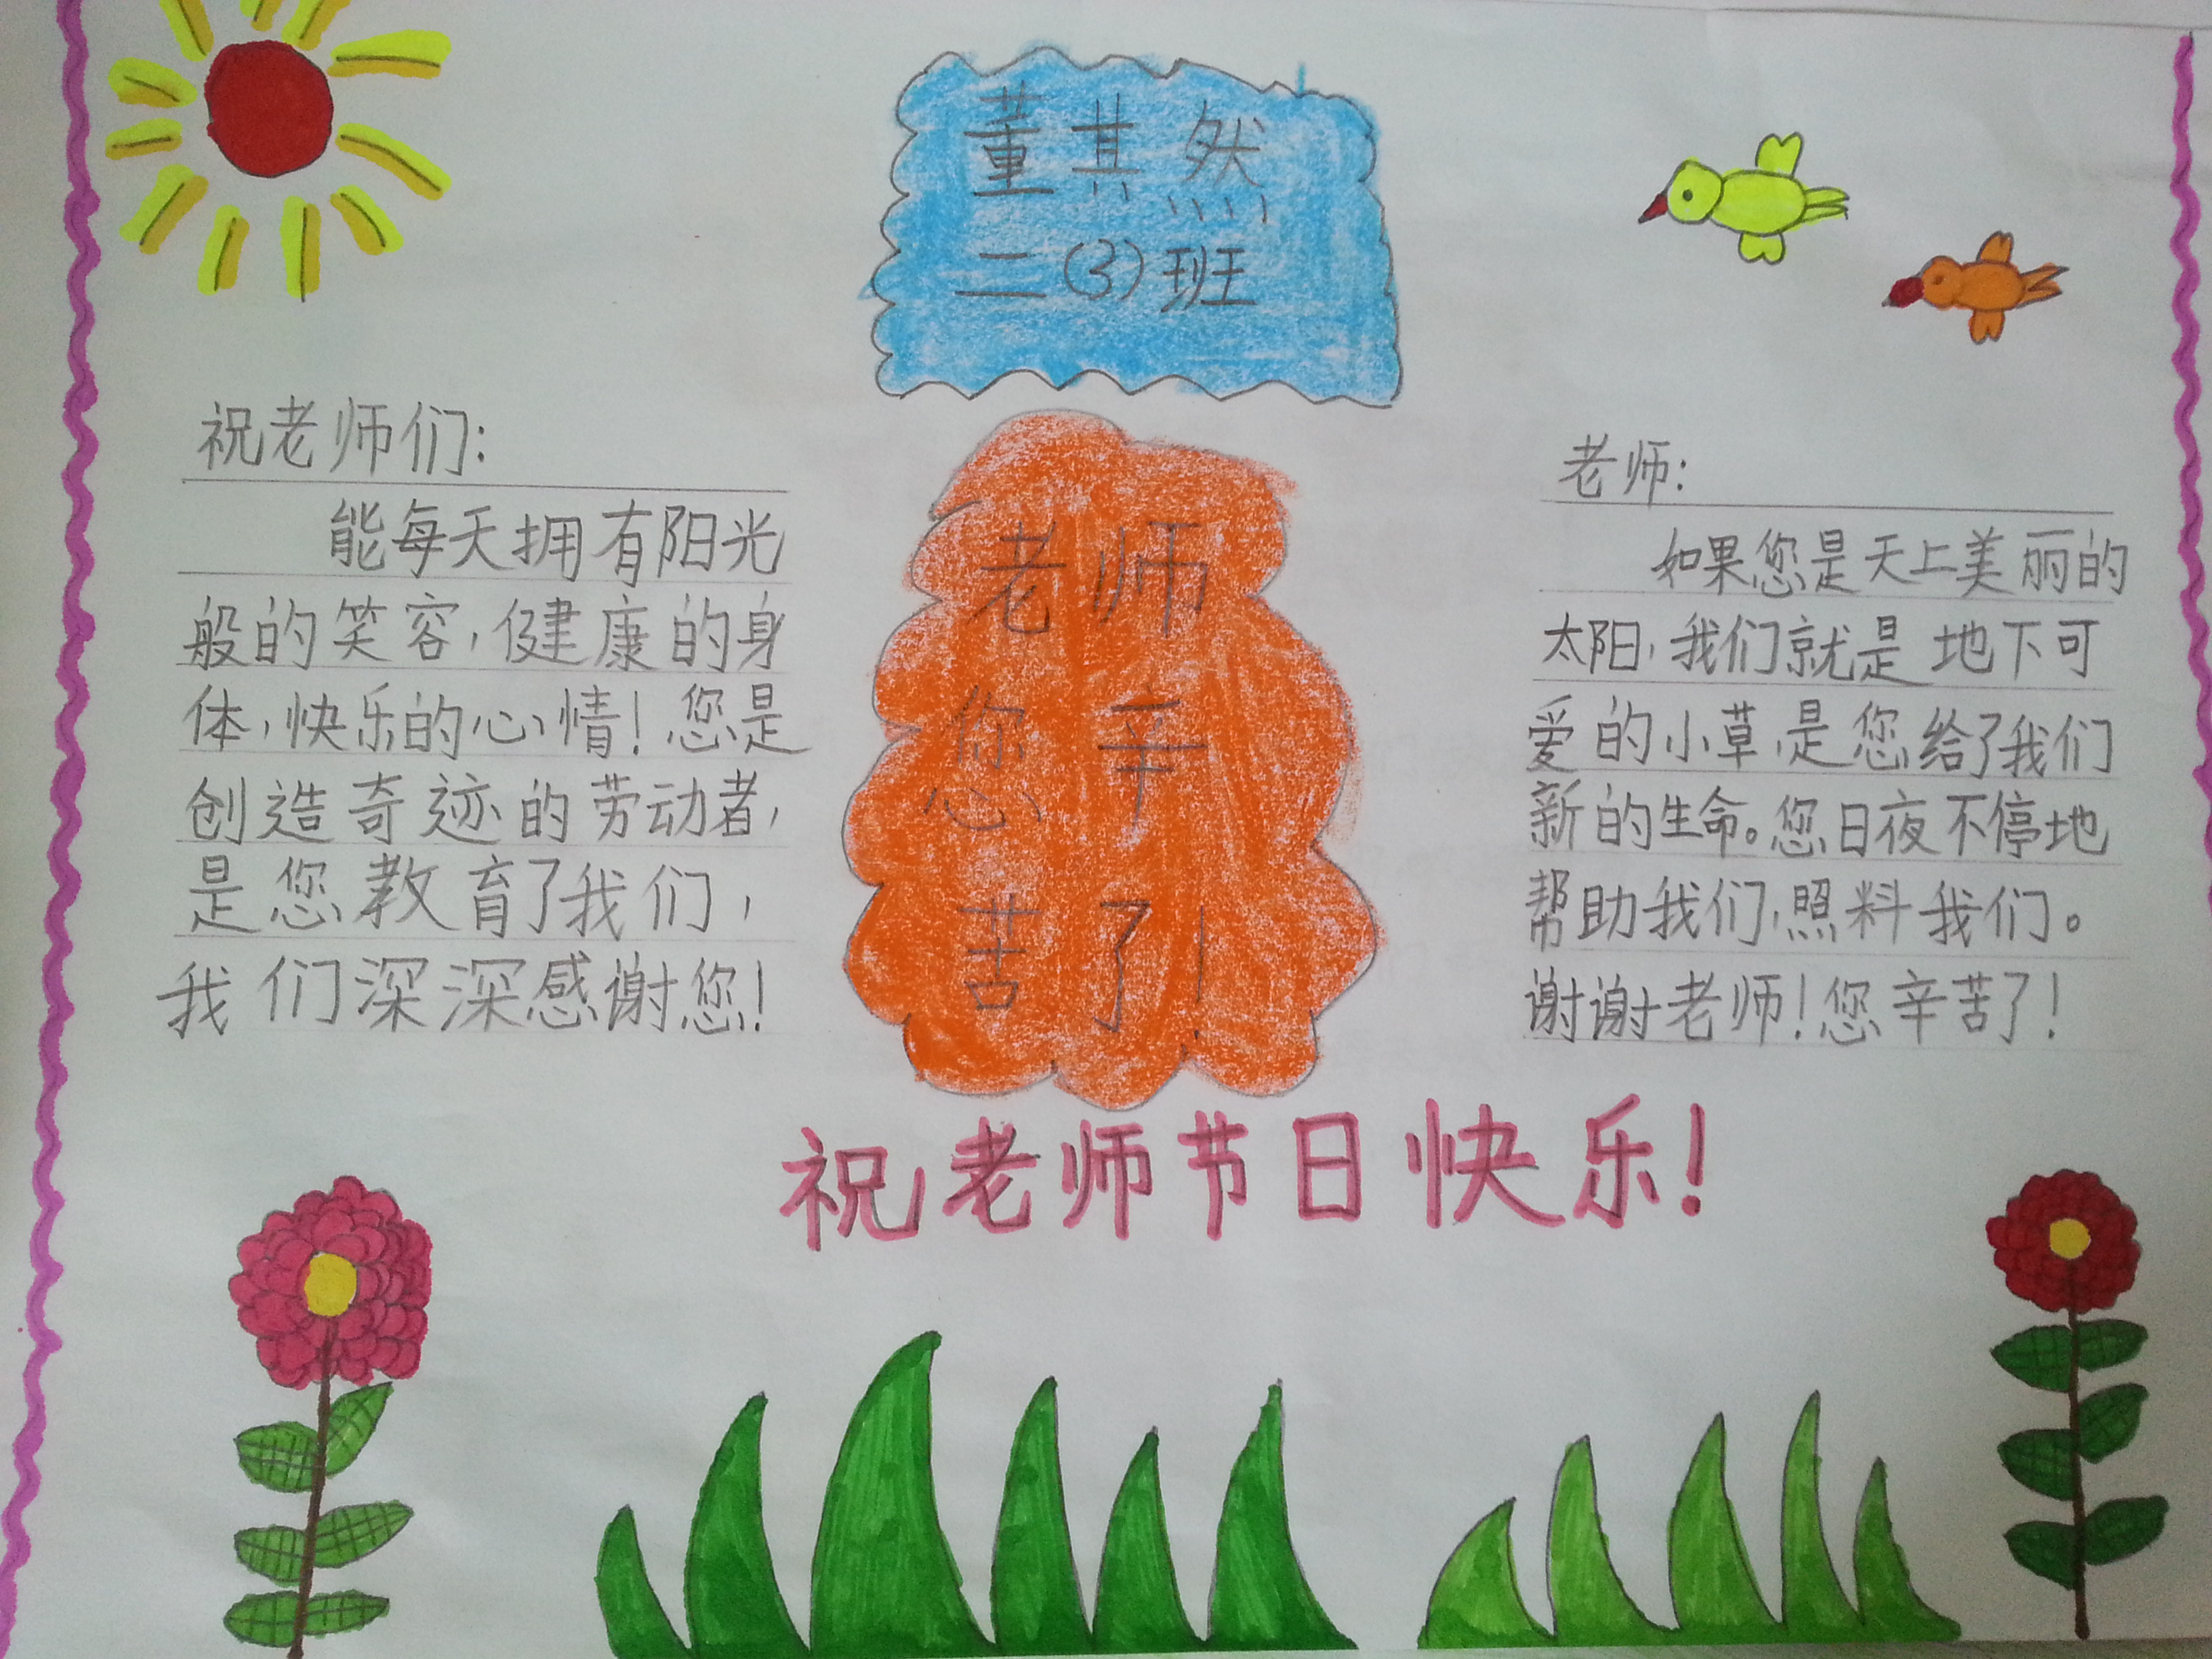 董其然
二(3)班
祝老师们:
能每天拥有阳光
般的笑容,健康的身
体,快乐的心情!您是
创造奇迹的劳动者,
是您教育了我们,
我们深深感谢您!
老师
您辛
苦了!
老师:
如果您是天上美丽的
太阳,我们就是地下可
爱的小草,是您给了我们
新的生命。您日夜不停地
帮助我们,照料我们。
谢谢老师!您辛苦了!
祝老师节日快乐!